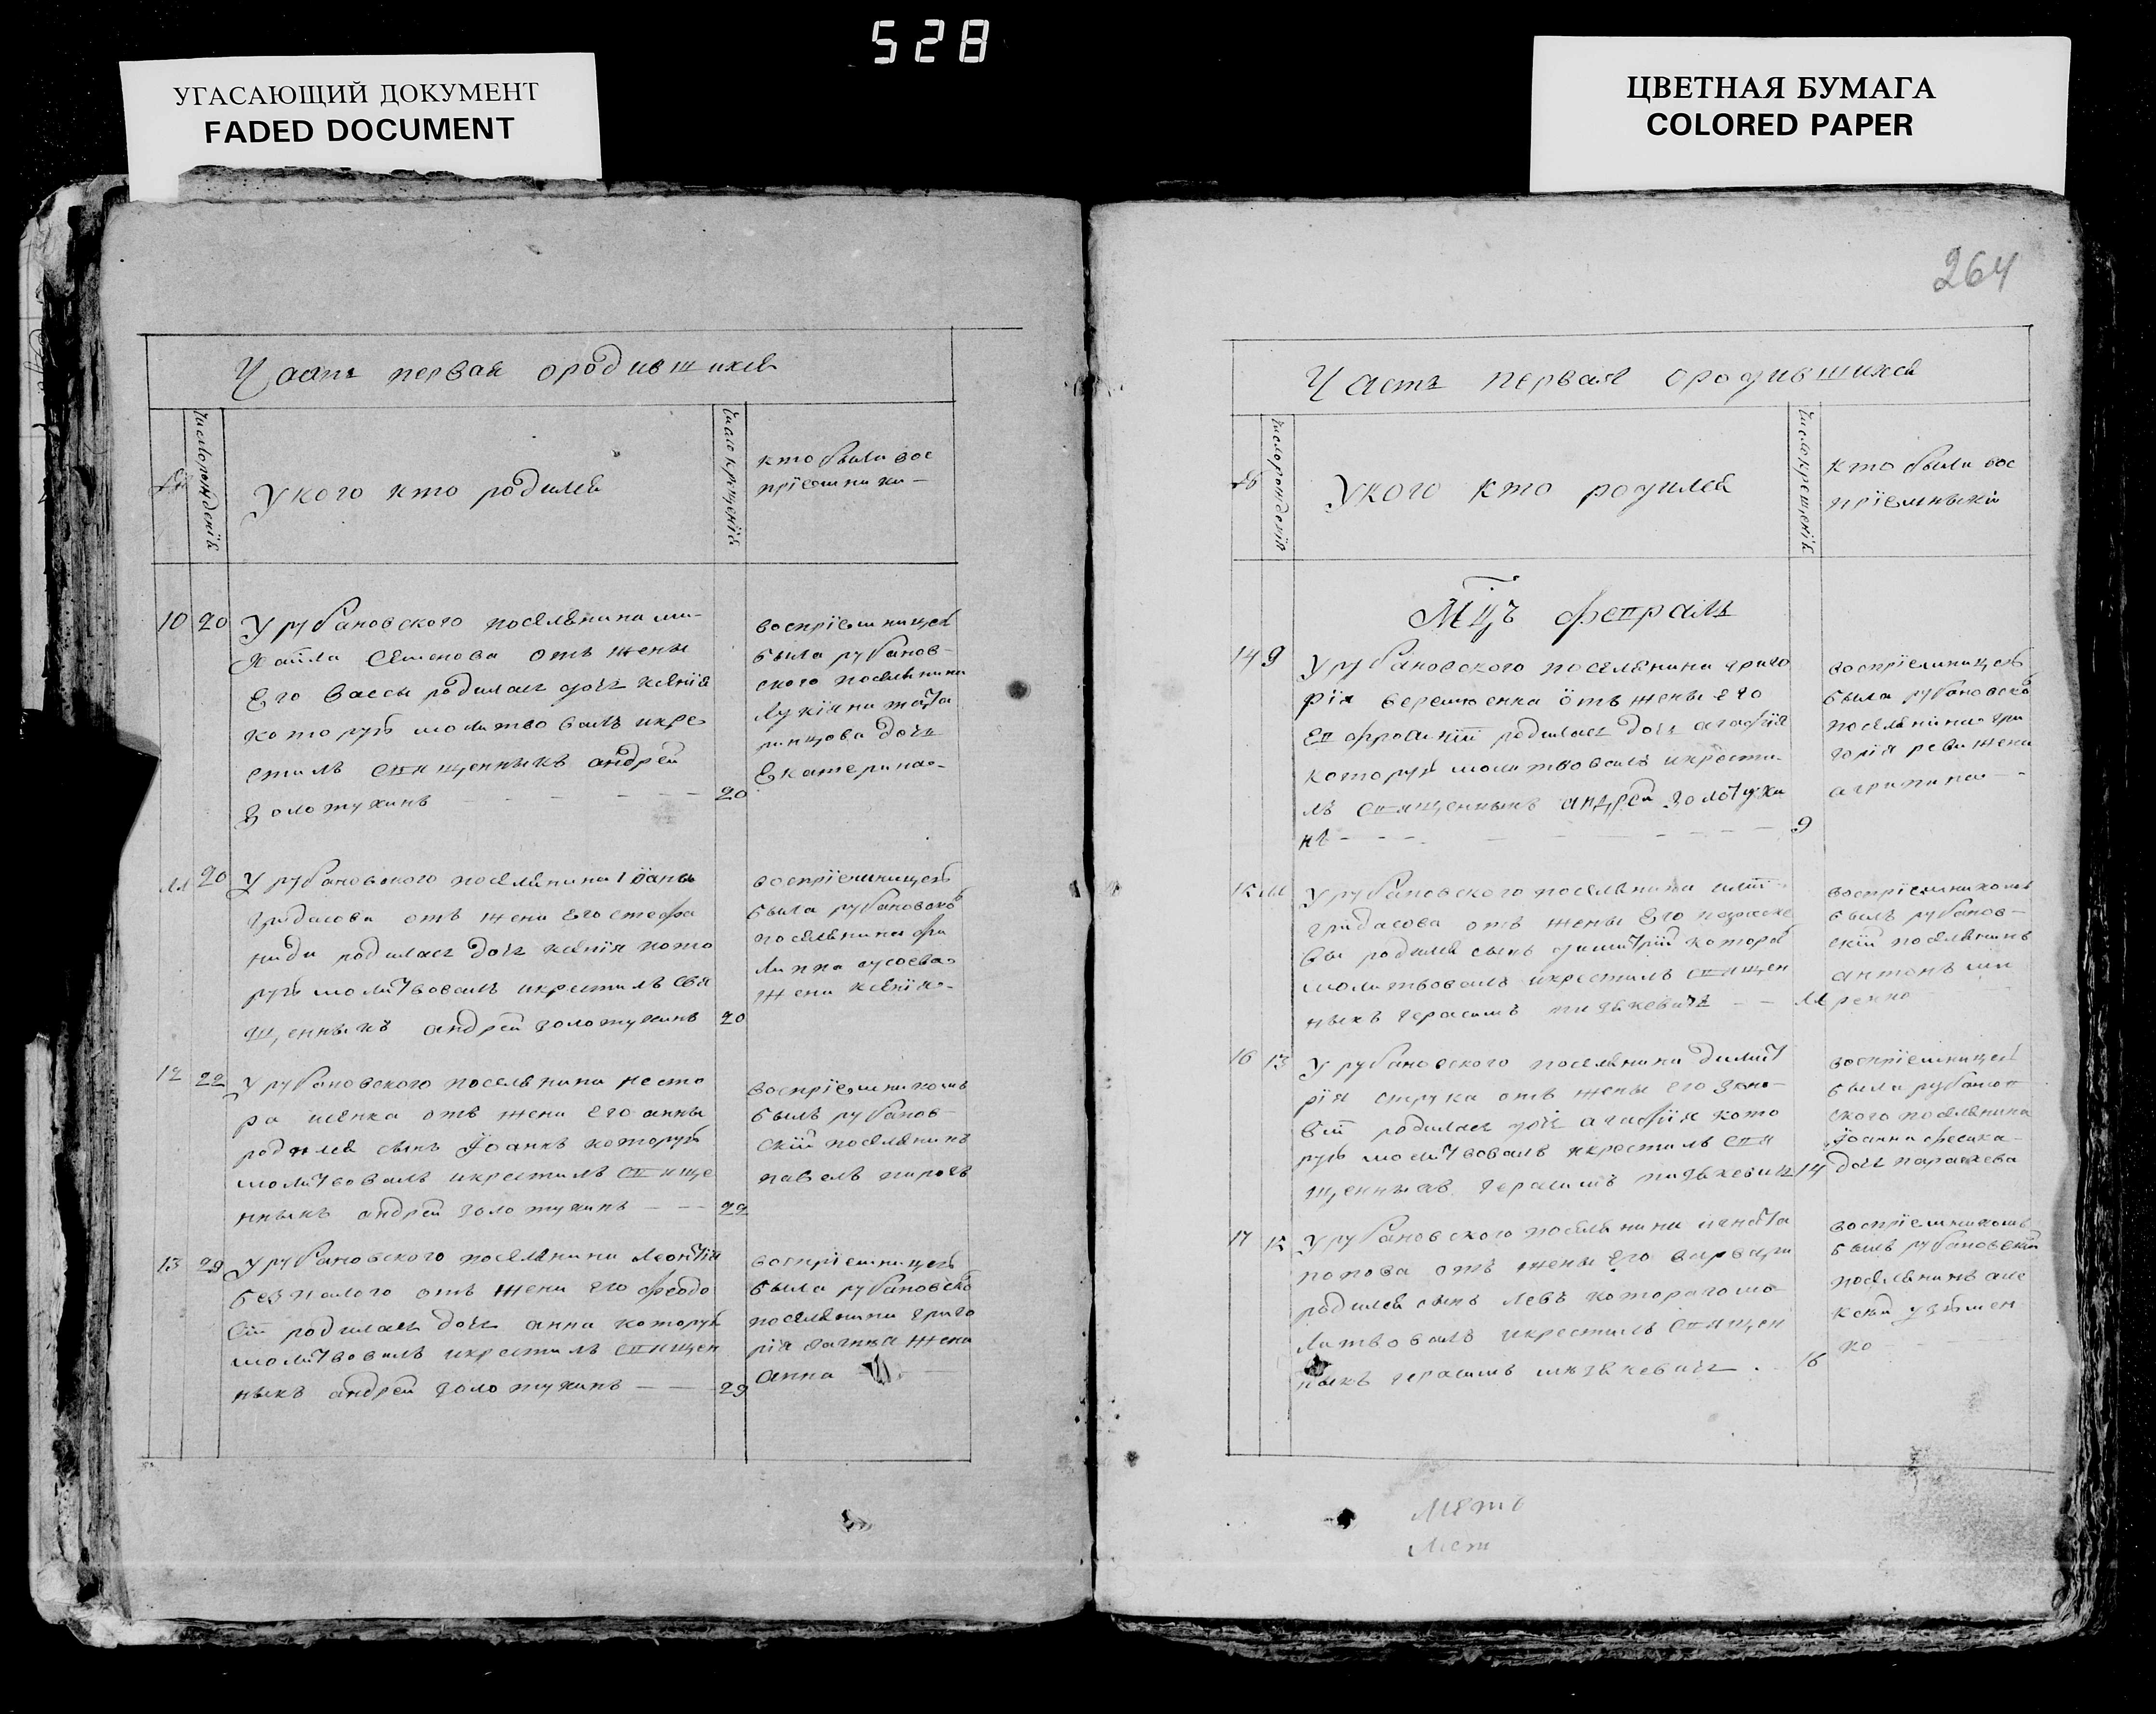 528
УГАСАЮЩИЙ ДОКУМЕНТ
FADED DOCUMENT
ЦВЕТНАЯ БУМАГА
COLORED PAPER
Часть первая ородившихся
№
Число рожденія
У кого кто родился
Число крещенія
кто были вос
пріемники
10 20
У рубановского поселянина ми-
хаила Семенова отъ жены
Его вассы родилась дочь ксенія
которую молитвовалъ икре
стилъ священникъ андрей
Золотухинъ 20
воспріемницею
была рубанов-
ского поселянина
Лукіяна
дочь
Екатерина
11 20
У рубановского поселянина іоанна
гридасова отъ жени Его стефа
ниди родилась дочь ксенія кото
рую молитвовалъ икрестилъ свя
щенникъ андрей золотухинъ 20
воспріемницею
была рубановско
поселянина фи
липпа сусоева
жена ксенія
12 22
У рубановского поселянина несто
ра отъ жени Его анны
родился сынъ Іоаннъ которую
молитвовалъ икрестилъ свяще
нныкъ андрей золотухинъ 22
воспріемникомъ
былъ рубанов-
скій поселянинъ
павелъ пирогъ
13 29
У рубановского поселянина леонтія
безпалого отъ жени его феодо
сіи родилась дочь анна которую
молитвовалъ икрестилъ священ
ныкъ андрей золотухинъ 29
воспріемницею
была рубановско
поселянина григо
рія жена
анна
264
Часть первая ородившихся
№
Число рожденія
У кого кто родился
Число крещенія
кто были вос
пріемныки
Мцъ февраль
14 9
У рубановского поселянина григо
рія веремѣенка отъ жены его
евфросиніи родилась дочь агафія
которую молитвовалъ икрести-
лъ священныкъ андрей золотухи
нъ 9
воспріемницею
была рубановско
поселянина гри
горія реви жена
агрипина
15 11
У рубановского поселянина
гридасова отъ жены Его параске
вы родился сынъ димитрій которо
молитвовалъ икрестилъ священ
ныкъ герасимъ 11
воспріемникомъ
былъ рубанов-
скій поселянинъ
антонъ
16 13
У рубановского поселянина димит
рія струка отъ жены его зено-
віи родилась дочь агафія кото
рую молитвовалъ икрестилъ свя
щенныкъ герасимъ 14
воспріемницею
была рубанов
ского поселянина
Іоанна фесика
дочь параскева
17 15
У рубановского поселянина
попова отъ жены Его варвари
родился сынъ левъ котораго мо-
литвовалъ икрестилъ священ
ныкъ герасимъ 16
воспріемникомъ
былъ рубановскій
поселянинъ але
ксѣй
ко